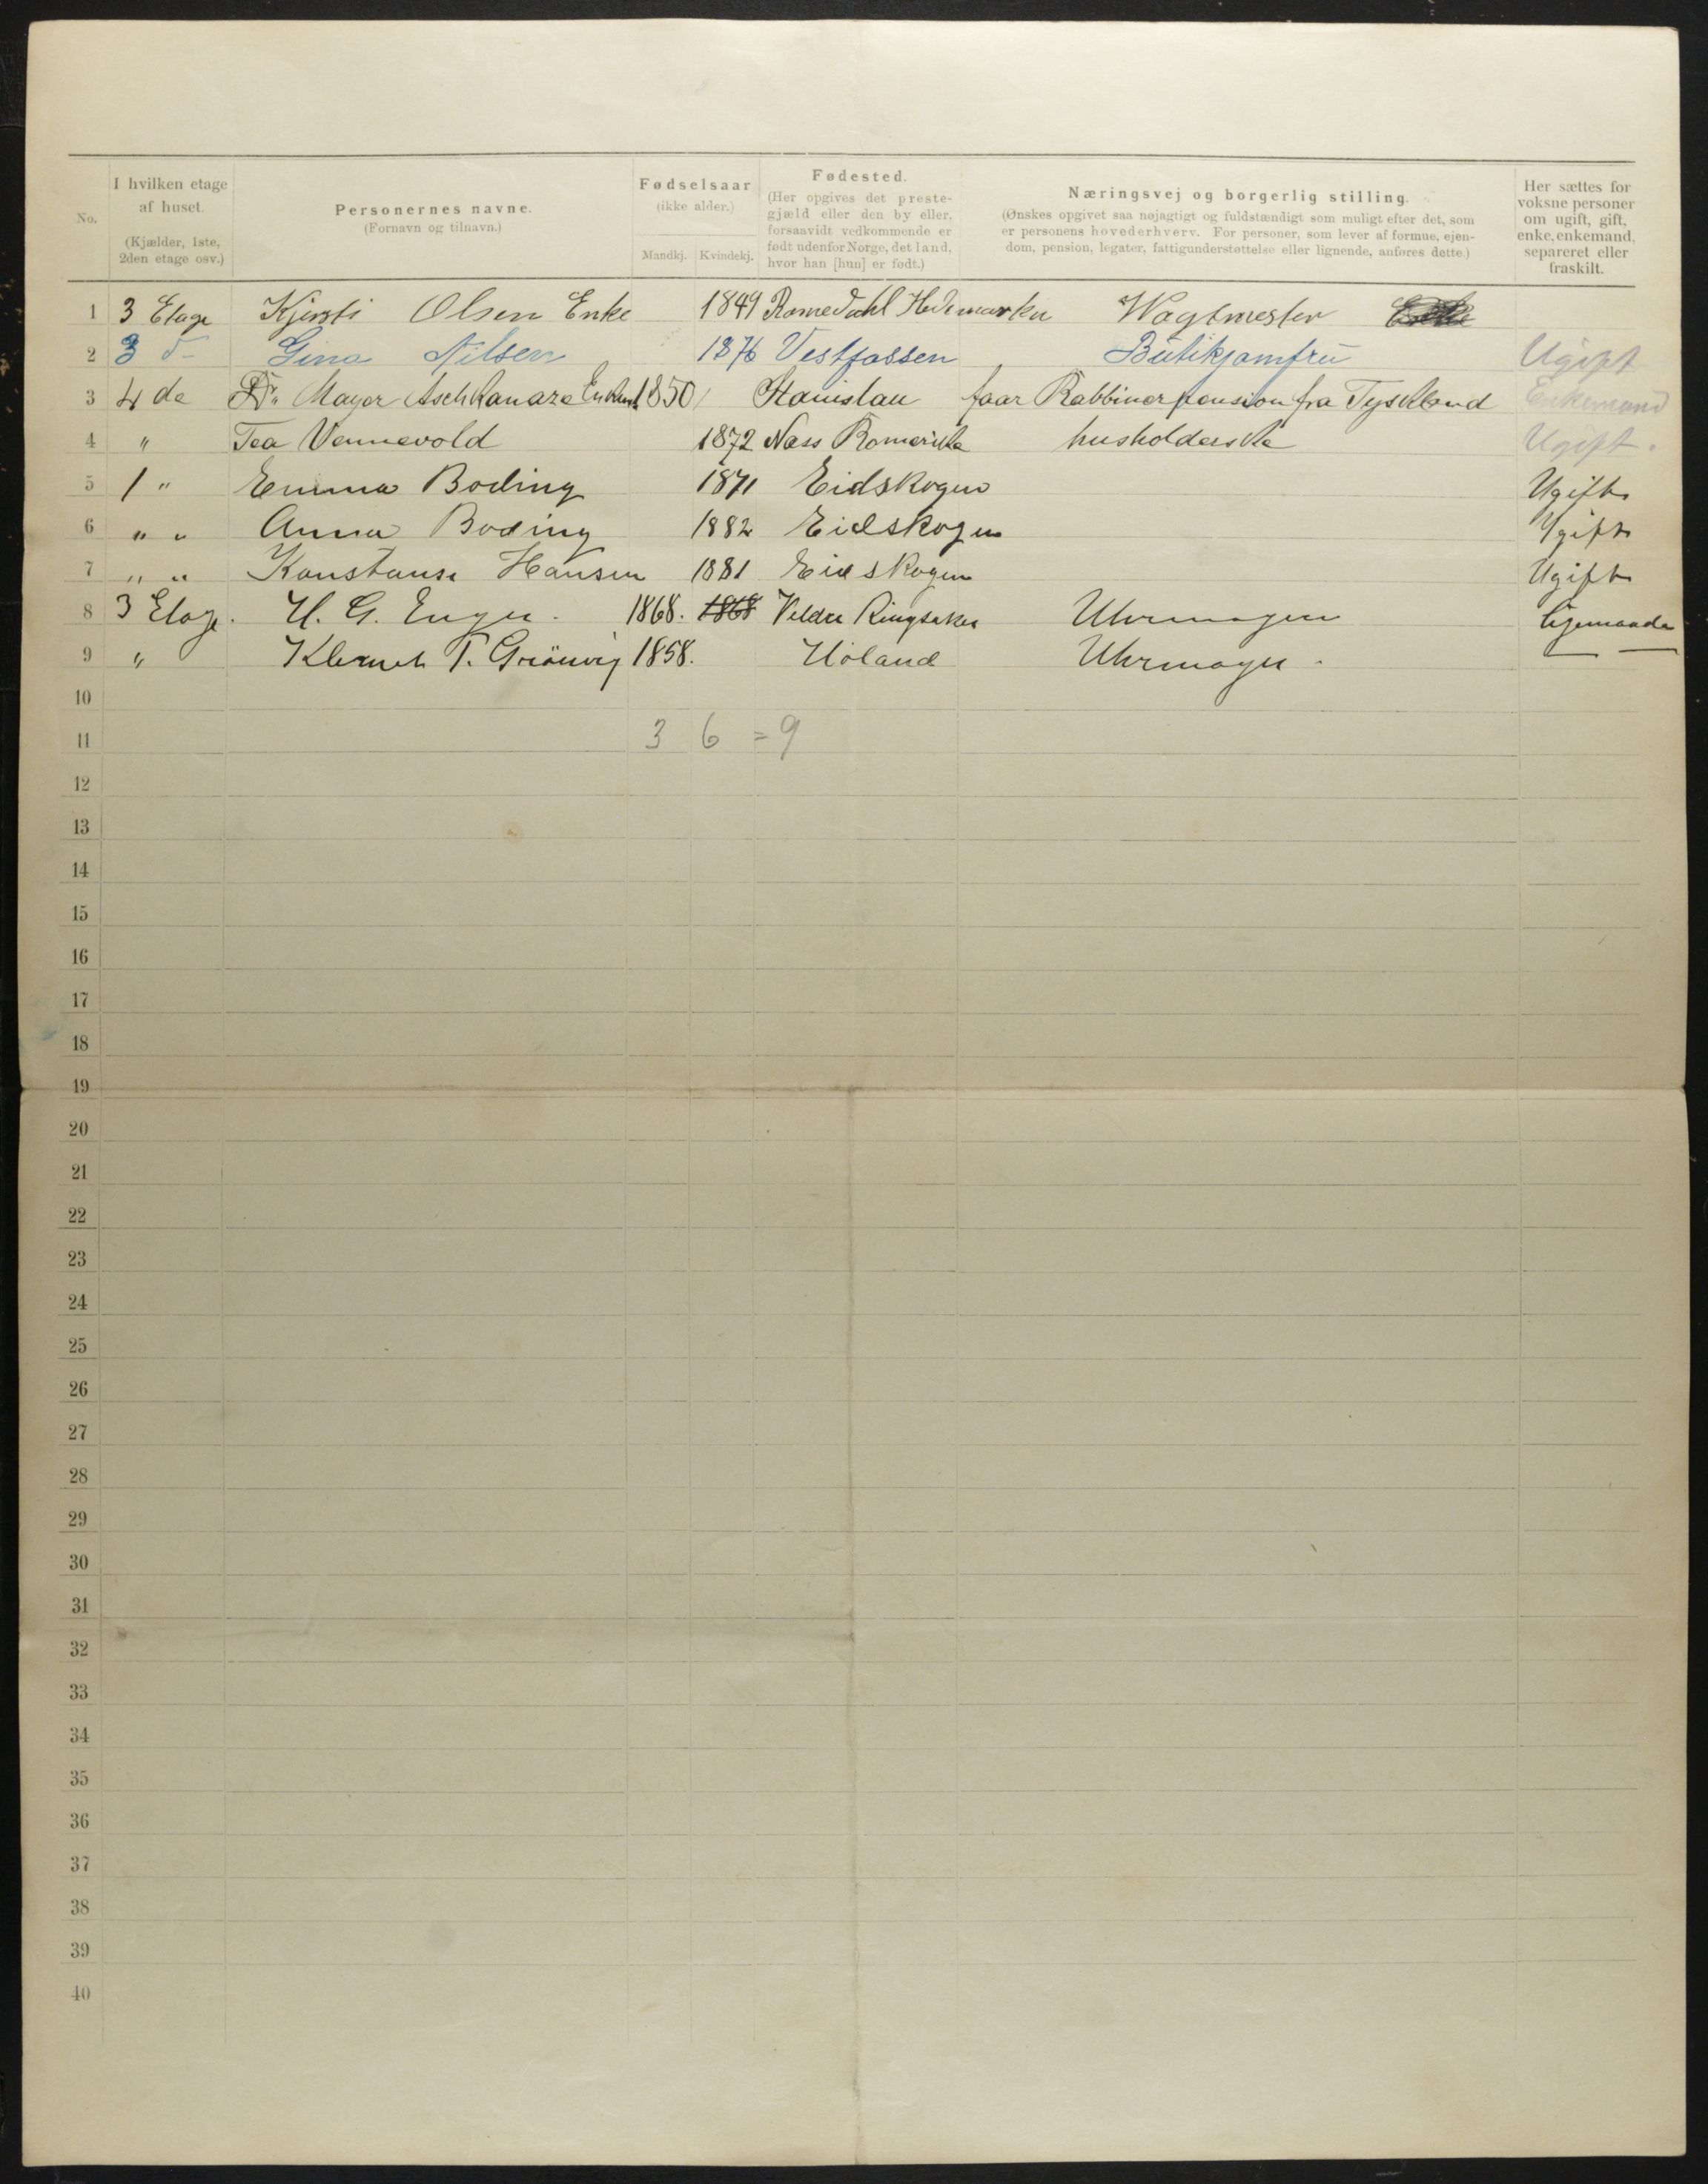 No.
I hvilken etage
af huset.
(Kjælder, 1ste,
2den etage osv.)
Personernes navne.
(Fornavn og tilnavn.)
Fødselsaar
(ikke alder.)
Mandkj. Kvindekj.
Fødested.
(Her opgives det preste-
gjæld eller den by eller,
forsaavidt vedkommende er
født udenfor Norge, det land,
hvor han [hun] er født.)
Næringsvej og borgerlig stilling.
(Ønskes opgivet saa nøjagtigt og fuldstændigt som muligt efter det, som
er personens hovederhverv. For personer, som lever af formue, ejen-
dom, pension, legater, fattigunderstøttelse eller lignende, anføres dette.)
Her sættes for
voksne personer
om ugift, gift,
enke, enkemand,
separeret eller
fraskilt.
1 3 Etage Kjersti Olsen Enke 1849 Romedahl Hedemarken Wagtmester
2 3 Gina Nilsen 1876 Vestfossen Butikjomfru Ugift
3 4 de Dr. Mayer Aschkanaze Enkem 1850 Stanislau faar Rabbinerpension fra Tyskland Enkemand
4 " Tea Vennevold 1872 Næss Romerike husholderske Ugift.
5 1 " Emma Boding 1871 Eidskogen Ugift
6 " " Anna Boding 1882 Eidskogen Ugift
7 " " Konstanse Hansen 1881 Eidskogen Ugift
8 3 Etage. H. G. Enger. 1868. 1868 Veldre Ringsaker Uhrmager
9 " Klemet T. Grönvig 1858. Höland Uhrmager.
10
11 3 6 = 9
12
13
14
15
16
17
18
19
20
21
22
23
24
25
26
27
28
29
30
31
32
33
34
35
36
37
38
39
40